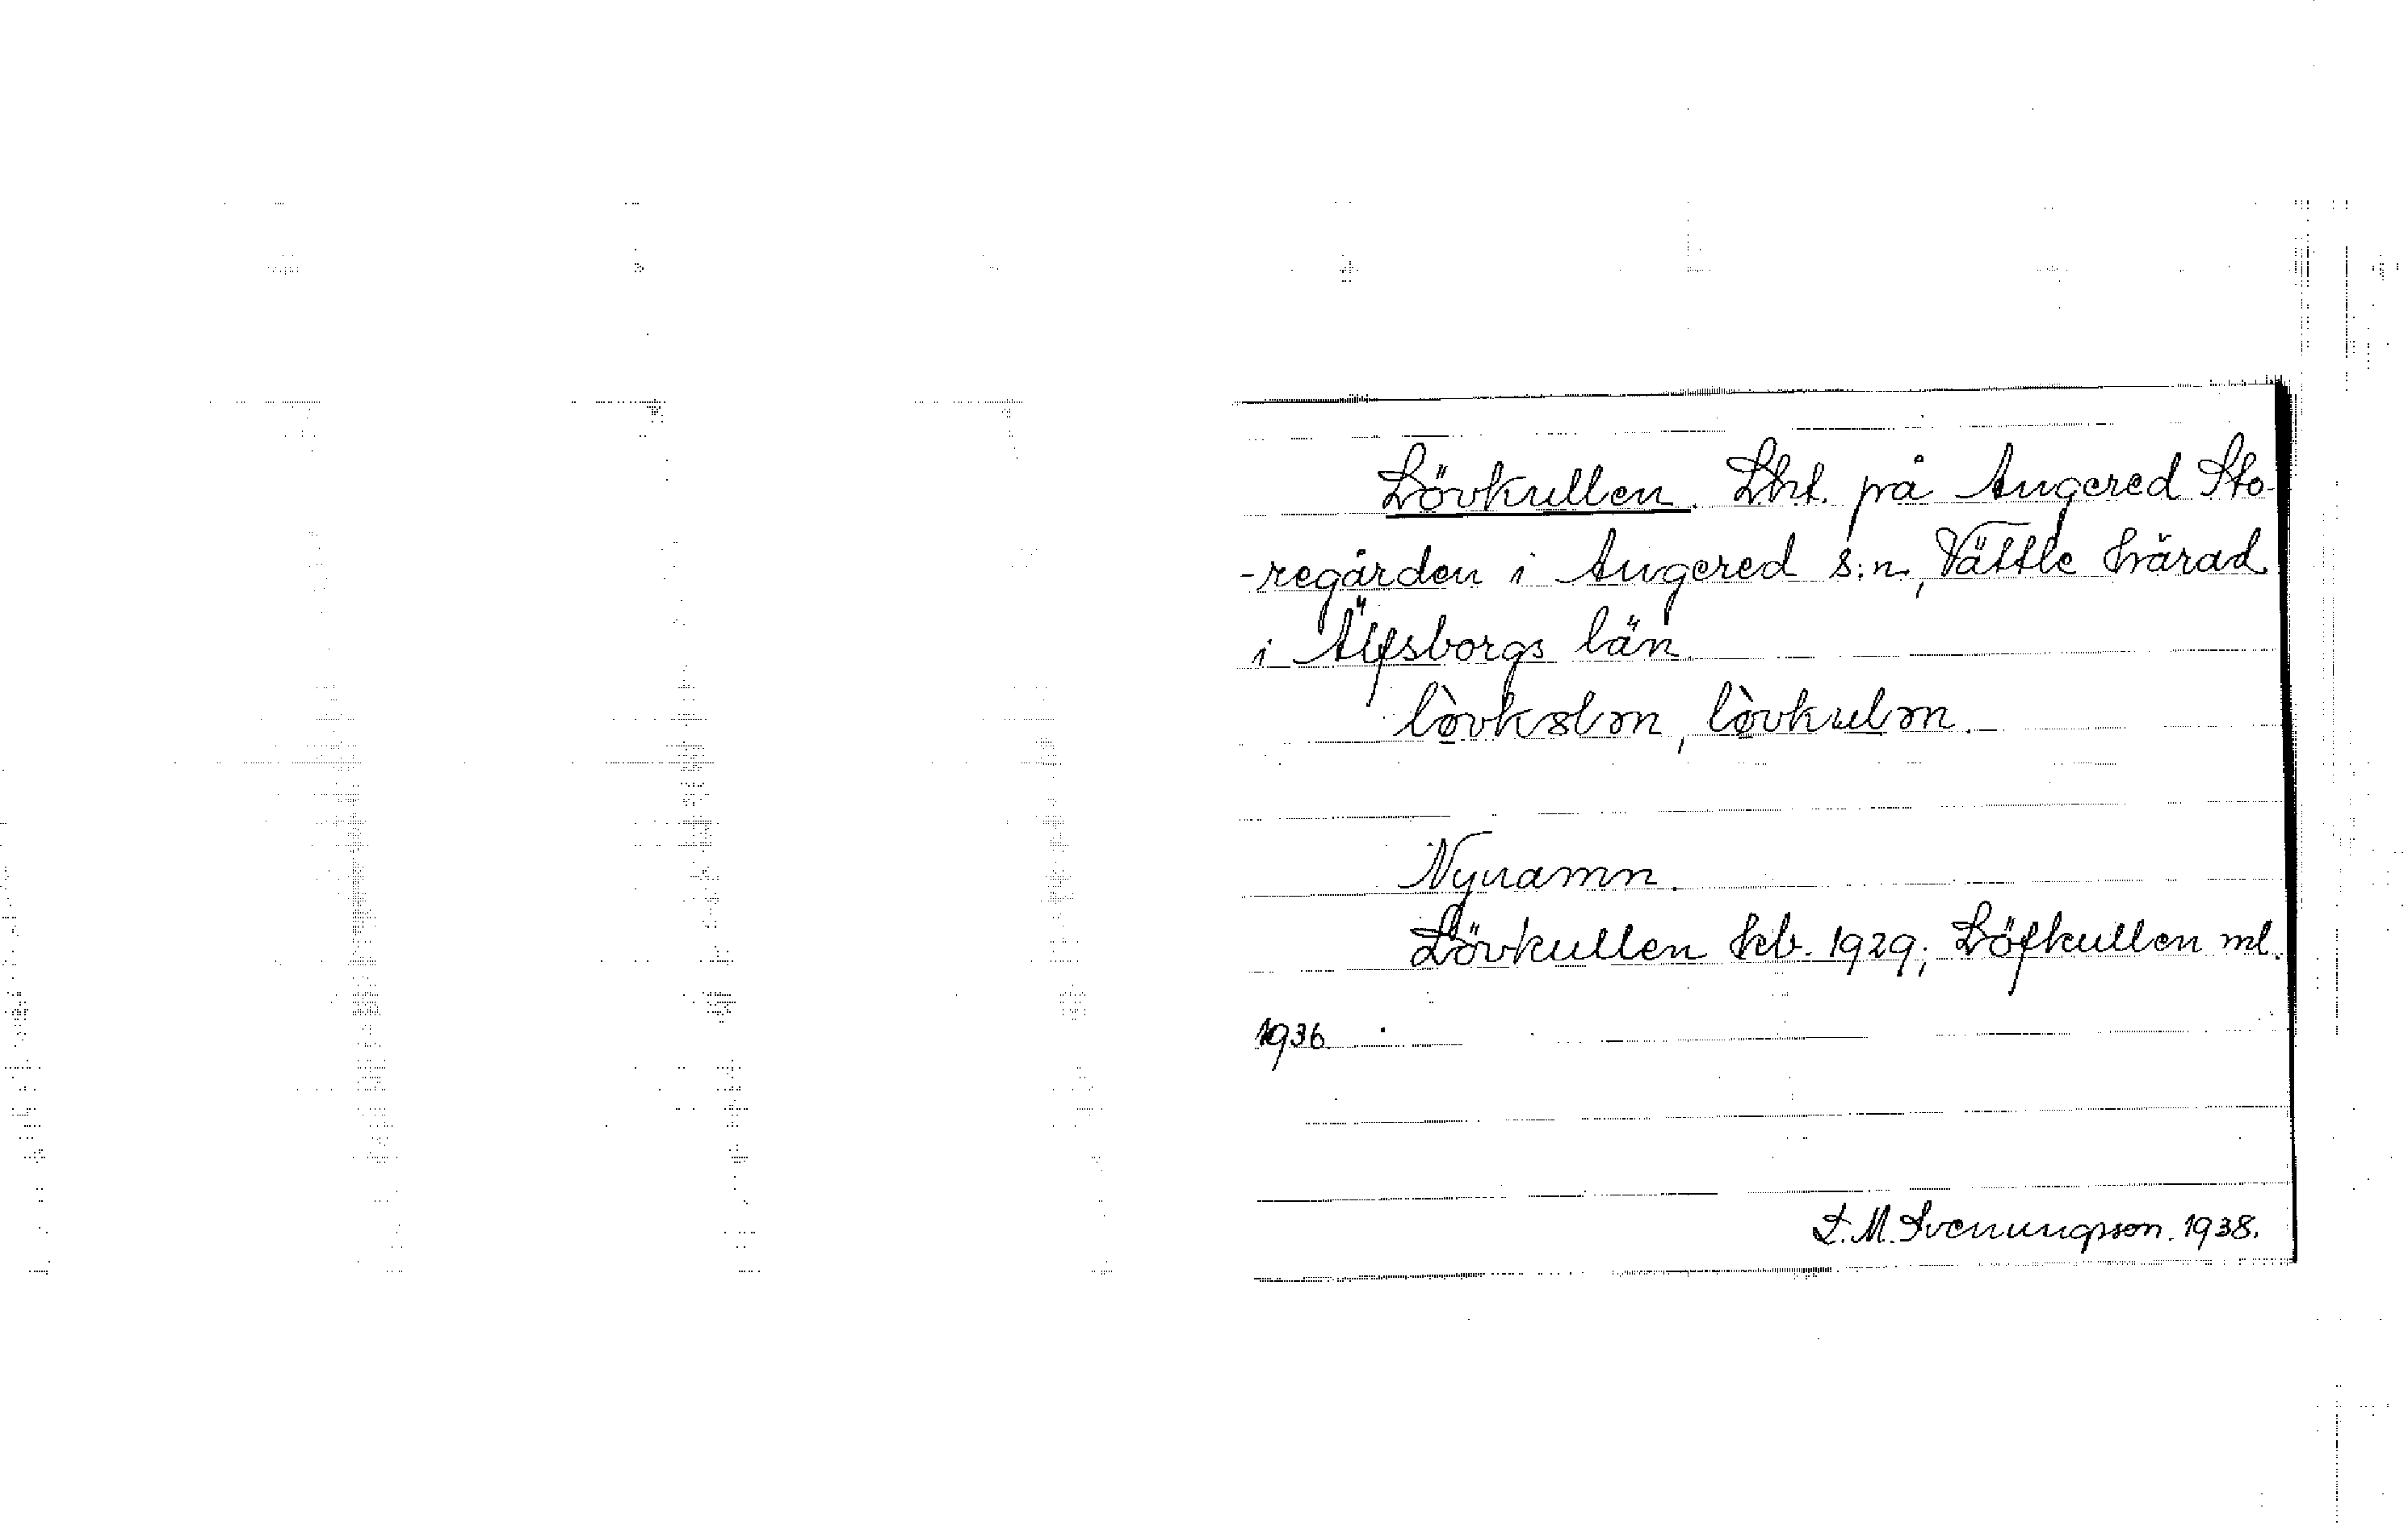 Lövkullen. Lht. på Angered Sto-
-regården i Angered s:n, Vättle härad
i Älfsborgs län.
Nynamn.
Lövkullen kb. 1929; Löfkullen ml.
1936.
L. M. Svenungsson. 1938.